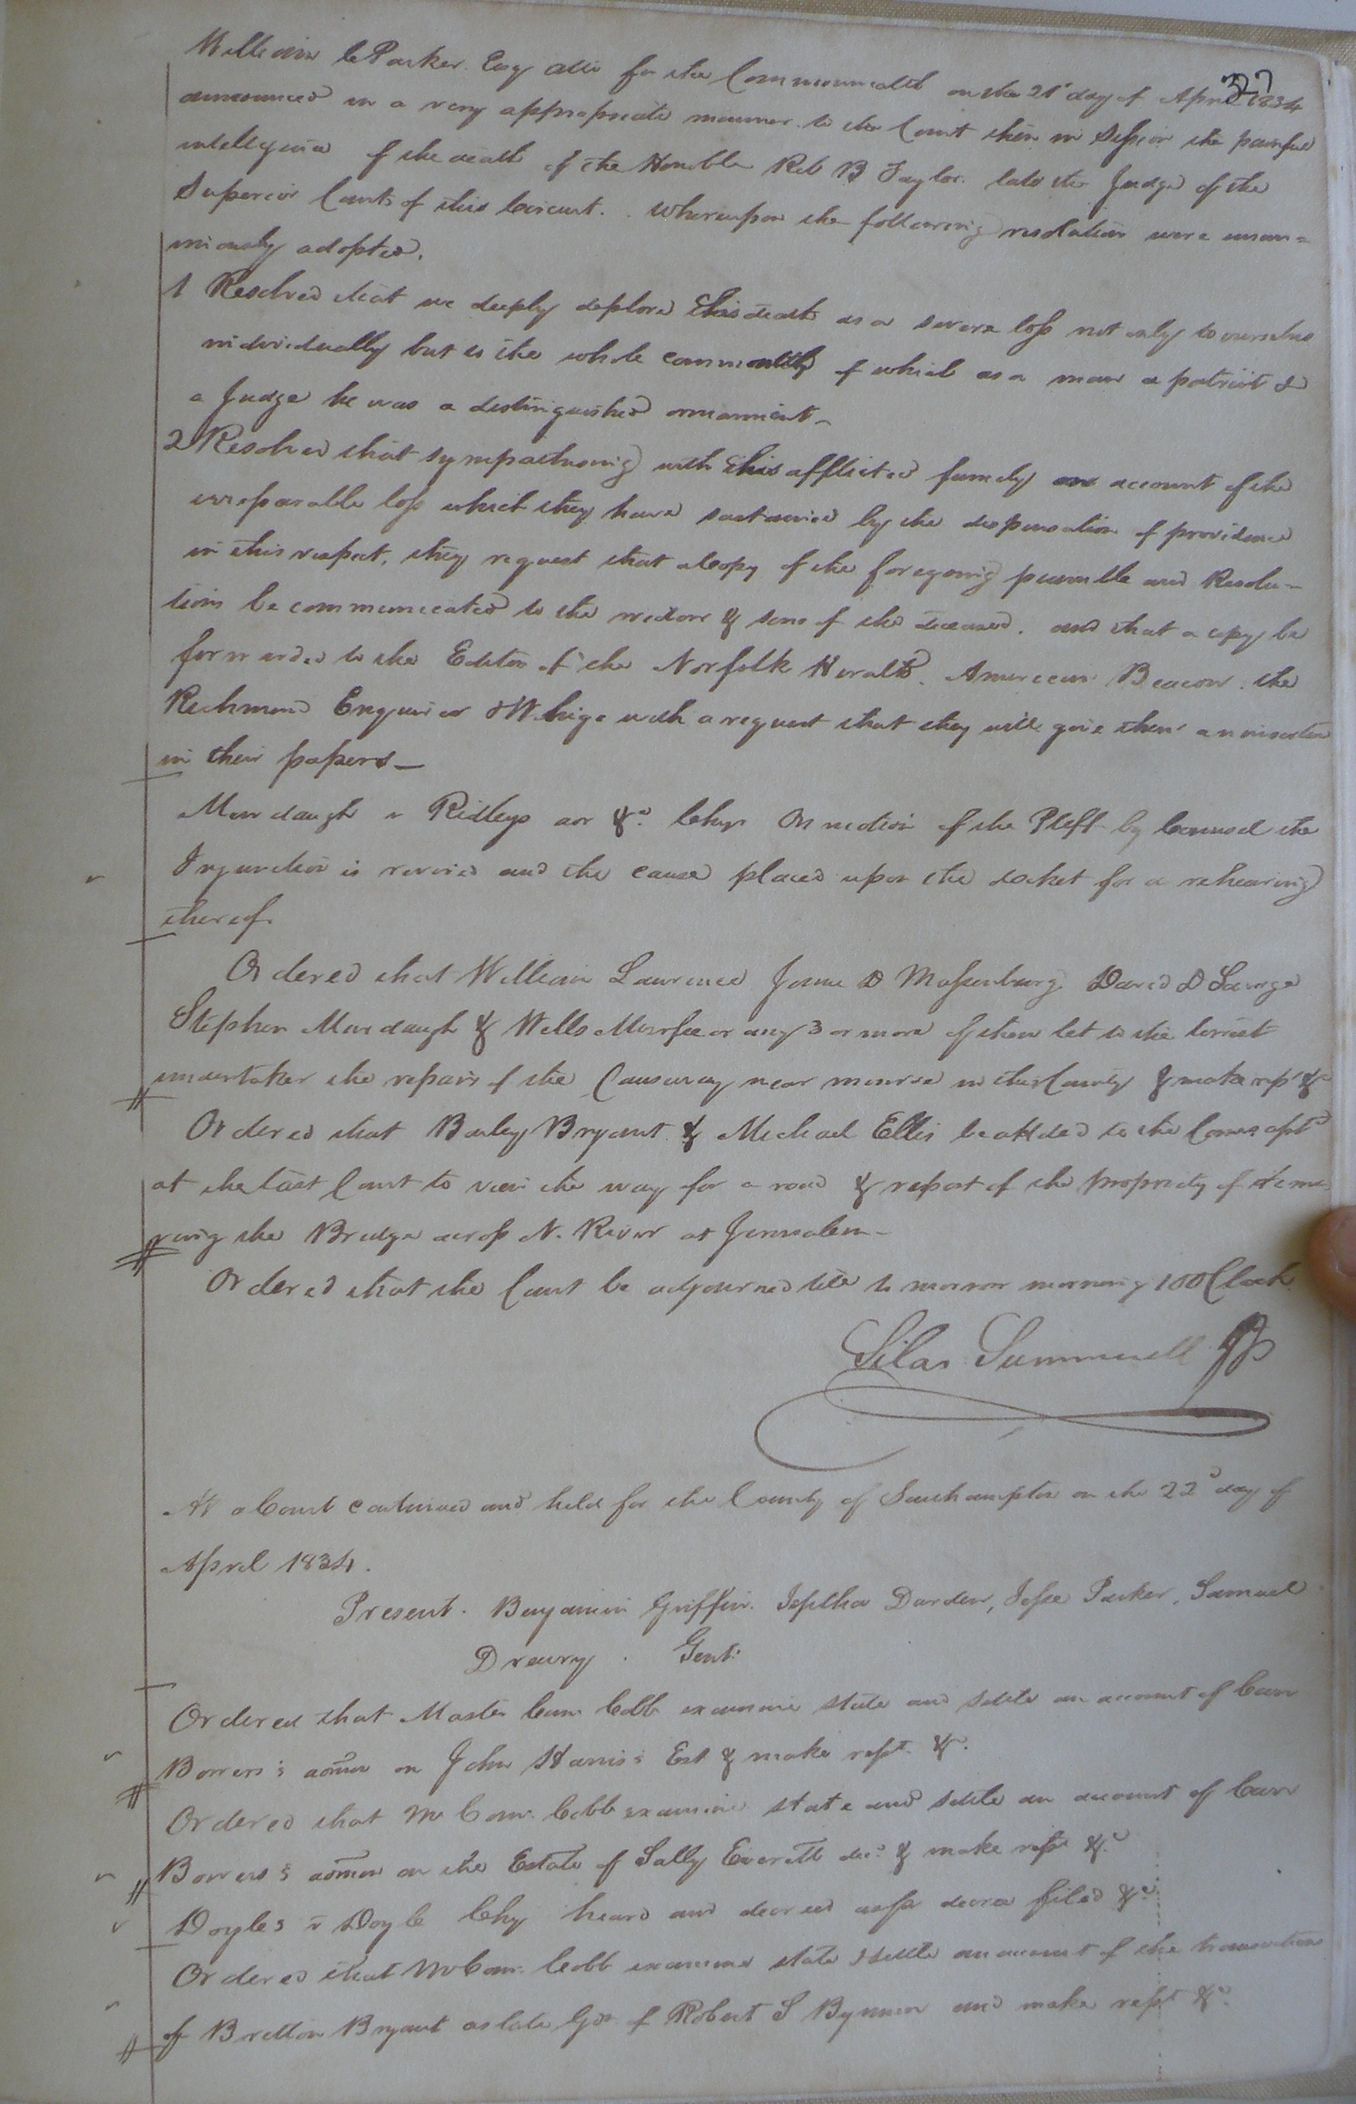 327
William C Parker Esqr atto for the Commonwealth on the 21st day of April 1834
announced in a very appropriate manner to the Court then in Session the painful
intelligence of the death of the Honble Rob B Taylor late the Judge of the
Superior Courts of this Circuit. Whereupon the following resolution were unan=
imously adopted.
1 Resolved that we deeply deplore this death as a severe loss not only to ourselves
individually but to the whole community of which as a man a patriot &
a Judge he was a distinguished ornament—
2 Resolved that sympathising with his afflicted family on account of the
irreparable loss which they have sustained by the dispensation of providence
in this respect, they request that a copy of the foregoing preamble and Resolu-
tions be communicated to the widow & sons of the deceased. and that a copy be
forwarded to the Editor of the Norfolk Herald. American Beacon. the
Richmond Enquirer & Whig with a request that they will give them an insertion
in their papers—
Murdaugh v Ridleys &c. Chy On motion of the Pltff by Counsel the
Injunction is revived and the cause placed upon the docket for a rehearing
thereof.
Ordered that William Lawrence D Massenburg David D Savage
Stephen Murdaugh & Wells Murfee or any 3 or more of them let to the lowest
undertaker the repairs of the Causeway near in this County & make rept &c
Ordered that Bailey Bryant & Michael Ellis be added to the Comrs aptd
at the last Court to view the way for a road & report of the propriety of remo
ving the Bridge across N. River at Jerusalem—
Ordered that the Court be adjourned till to morrow morning 10 O Clock.
Silas Summerell JP
At a Court continued and held for the County of Southampton on the 22d day of
April 1834.
Present. Benjamin Griffin. Jeptha Darden, Jesse Parker, Samuel
Drewry. Gent:
Ordered that Master Com Cobb examine state and settle an account of Carr
Bowers's admon on John Harris's Est & make rept &c.
Ordered that Mr Com. Cobb examine state and settle an account of Carr
Bowers's admon on the Estate of Sally Everett dec. & make rept &c.
Doyles v Doyle Chy heard and decreed as pr decree filed &c
Ordered that Mr Com. Cobb examine state & settle an account of the transactions
of Britton Bryant as late Gdn of Robert S Bynum and make rept &c.